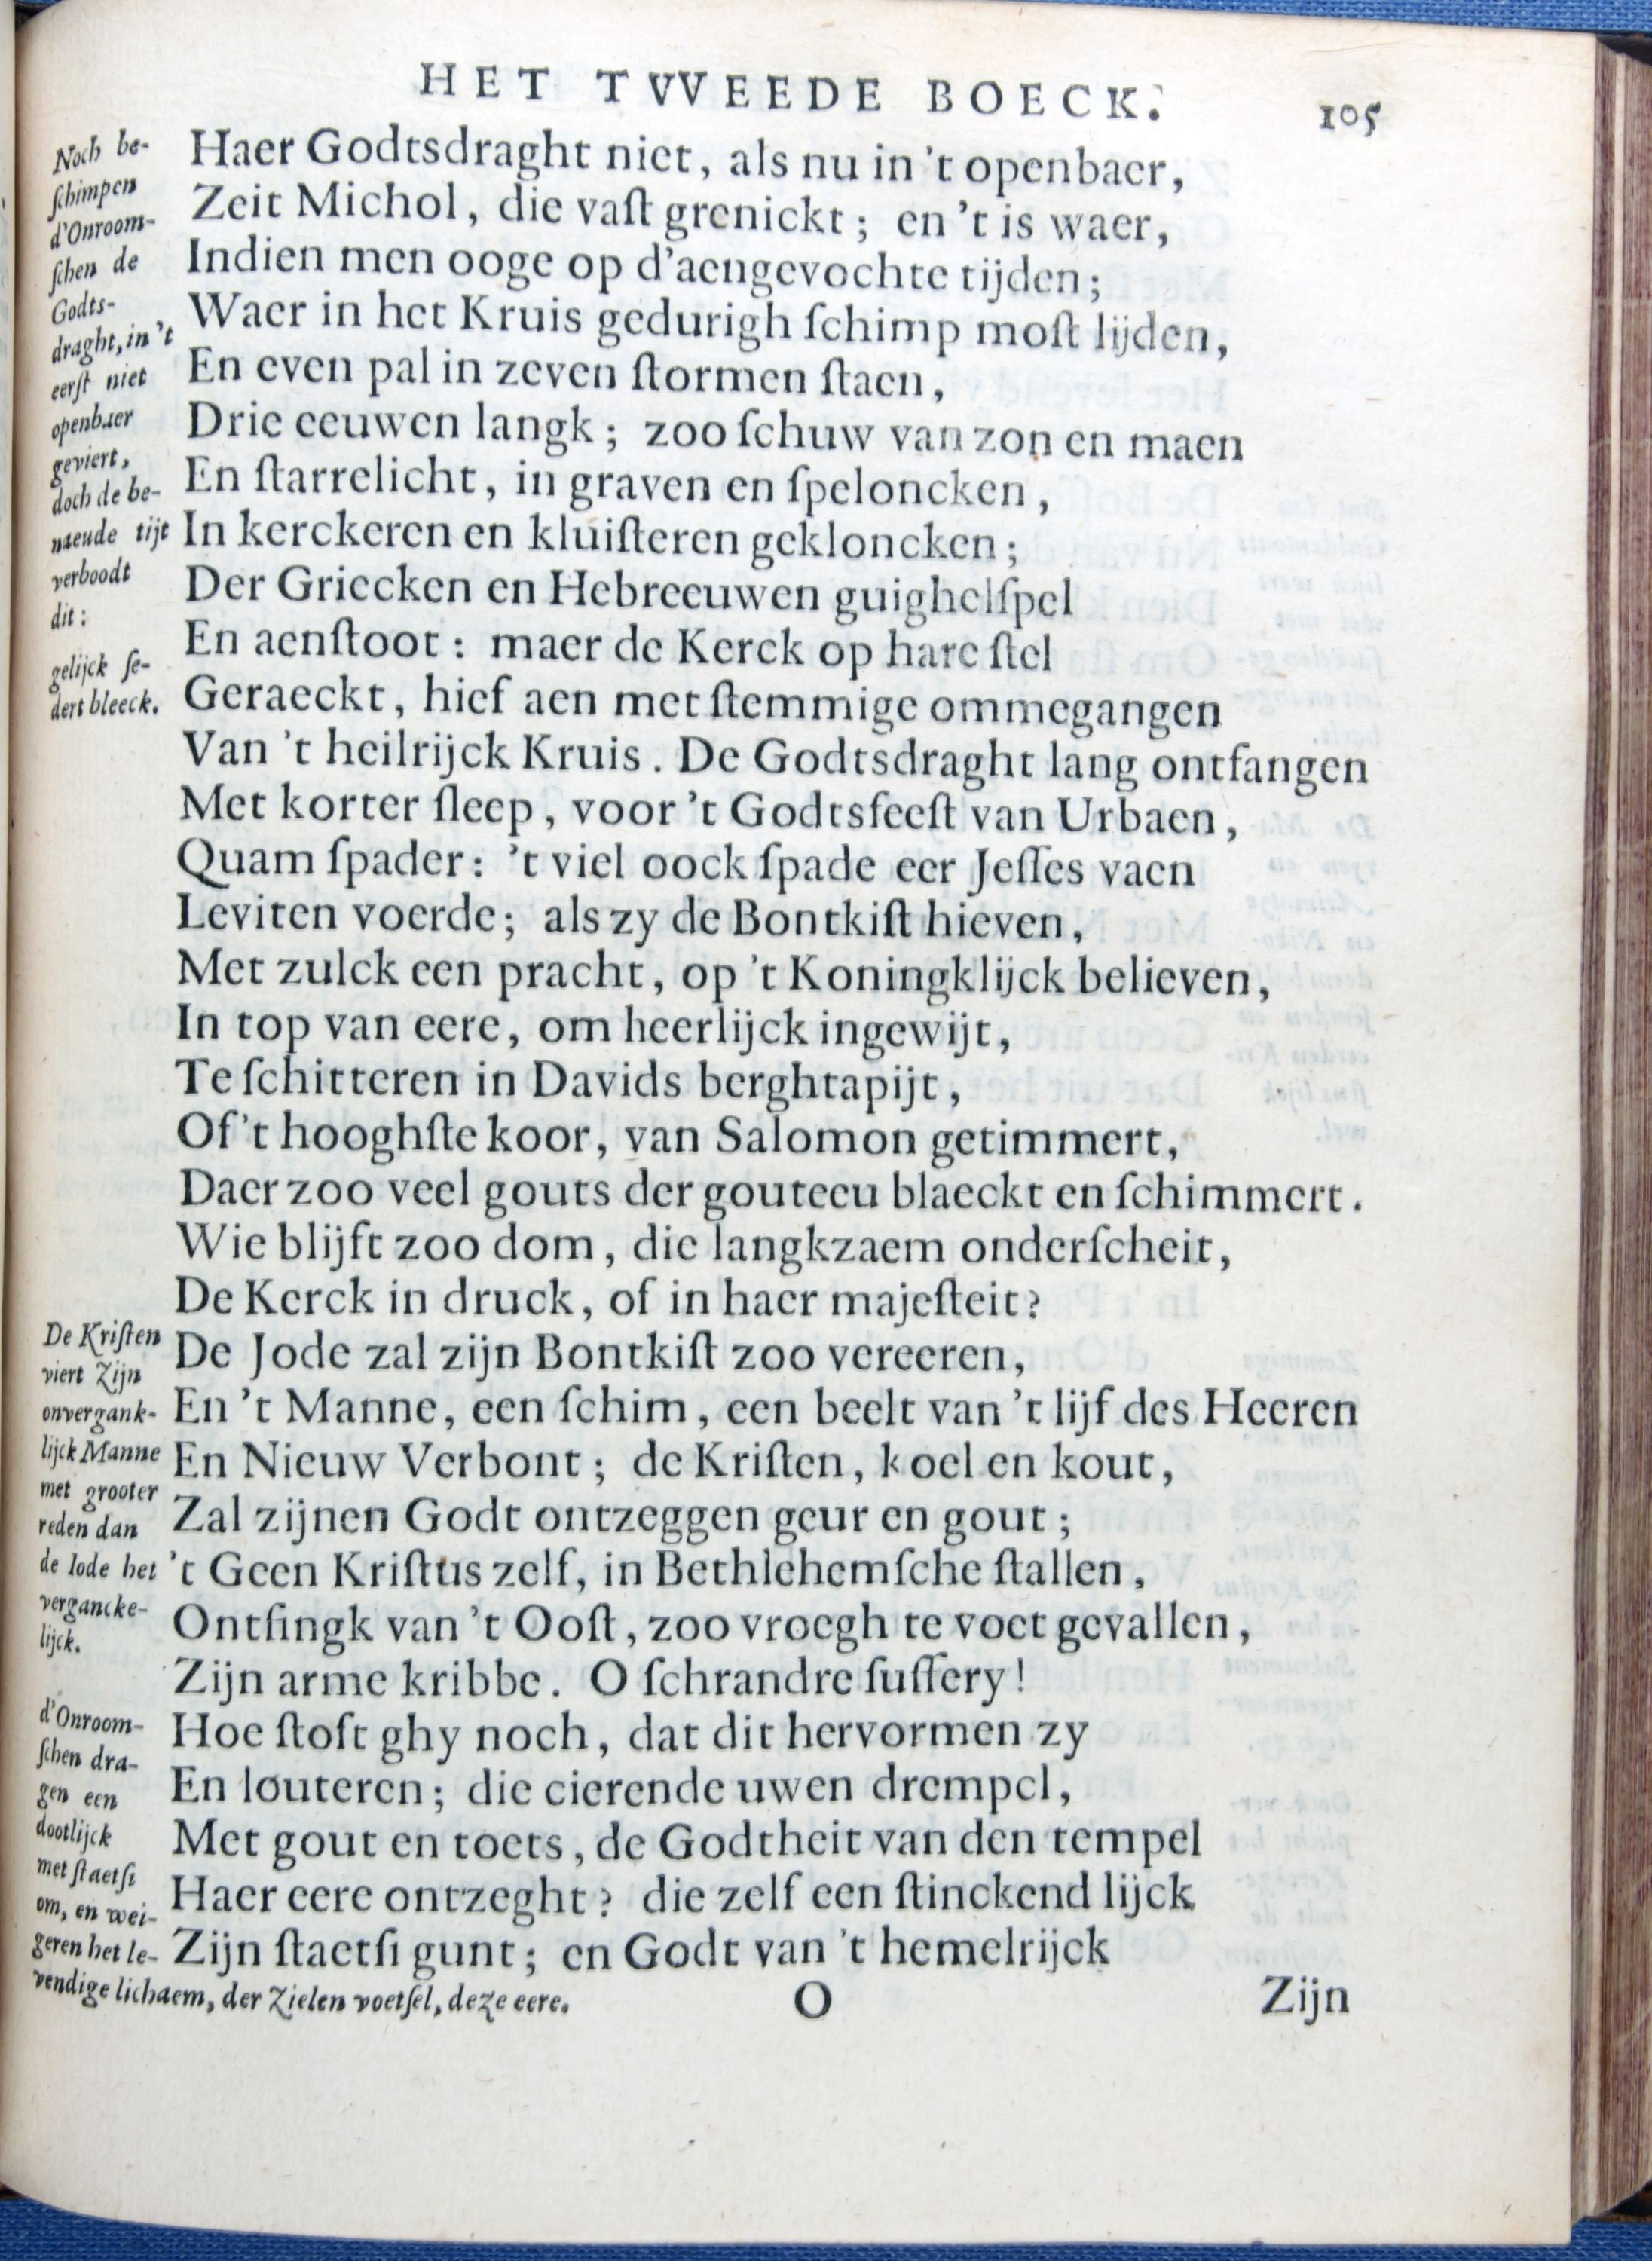 HET TVVEEDE BOECK. 105
Noch be-
ſchimpen
d'Onroom-
ſchen de
Godts-
draght, in 't
eerſt niet
openbaer
geviert,
doch de be-
naeude tijt
verboodt
dit:
gelijck ſe-
dert bleeck.
Haer Godtsdraght niet, als nu in 't openbaer,
Zeit Michol, die vaſt grenickt; en 't is waer,
Indien men ooge op d'aengevochte tijden;
Waer in het Kruis gedurigh ſchimp moſt lijden,
En even pal in zeven ſtormen ſtaen,
Drie eeuwen langk; zoo ſchuw van zon en maen
En ſtarrelicht, in graven en ſpeloncken,
In kerckeren en kluiſteren gekloncken;
Der Griecken en Hebreeuwen guighelſpel
En aenſtoot: maer de Kerck op hare ſtel
Geraeckt, hief aen met ſtemmige ommegangen
Van 't heilrijck Kruis. De Godtsdraght lang ontfangen
Met korter ſleep, voor 't Godtsfeeſt van Urbaen,
Quam ſpader: 't viel oock ſpade eer Jeſſes vaen
Leviten voerde; als zy de Bontkiſt hieven,
Met zulck een pracht, op 't Koningklijck believen,
In top van eere, om heerlijck ingewijt,
Te ſchitteren in Davids berghtapijt,
Of 't hooghſte koor, van Salomon getimmert,
Daer zoo veel gouts der gouteeu blaeckt en ſchimmert.
Wie blijft zoo dom, die langkzaem onderſcheit,
De Kerck in druck, of in haer majeſteit?
De Kriſten
viert Zijn
onvergank-
lijck Manne
met grooter
reden dan
de Iode het
vergancke-
lijck.
De Jode zal zijn Bontkiſt zoo vereeren,
En 't Manne, een ſchim, een beelt van 't lijf des Heeren
En Nieuw Verbont; de Kriſten, koel en kout,
Zal zijnen Godt ontzeggen geur en gout;
't Geen Kriſtus zelf, in Bethlehemſche ſtallen,
Ontfingk van 't Ooſt, zoo vroegh te voet gevallen,
Zijn arme kribbe. O ſchrandre ſuffery!
d'Onroom-
ſchen dra-
gen een
dootlijck
met ſtaetſi
om, en wei-
geren het le-
vendige lichaem, der Zielen voetſel, deze eere.
Hoe ſtoft ghy noch, dat dit hervormen zy
En louteren; die cierende uwen drempel,
Met gout en toets, de Godtheit van den tempel
Haer eere ontzeght? die zelf een ſtinckend lijck
Zijn ſtaetſi gunt; en Godt van 't hemelrijck
O Zijn